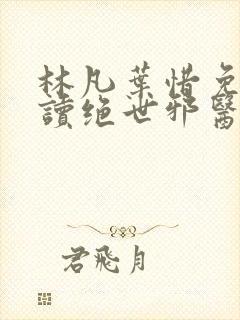 林凡葉惜免
讀绝世邪醫
君飛月